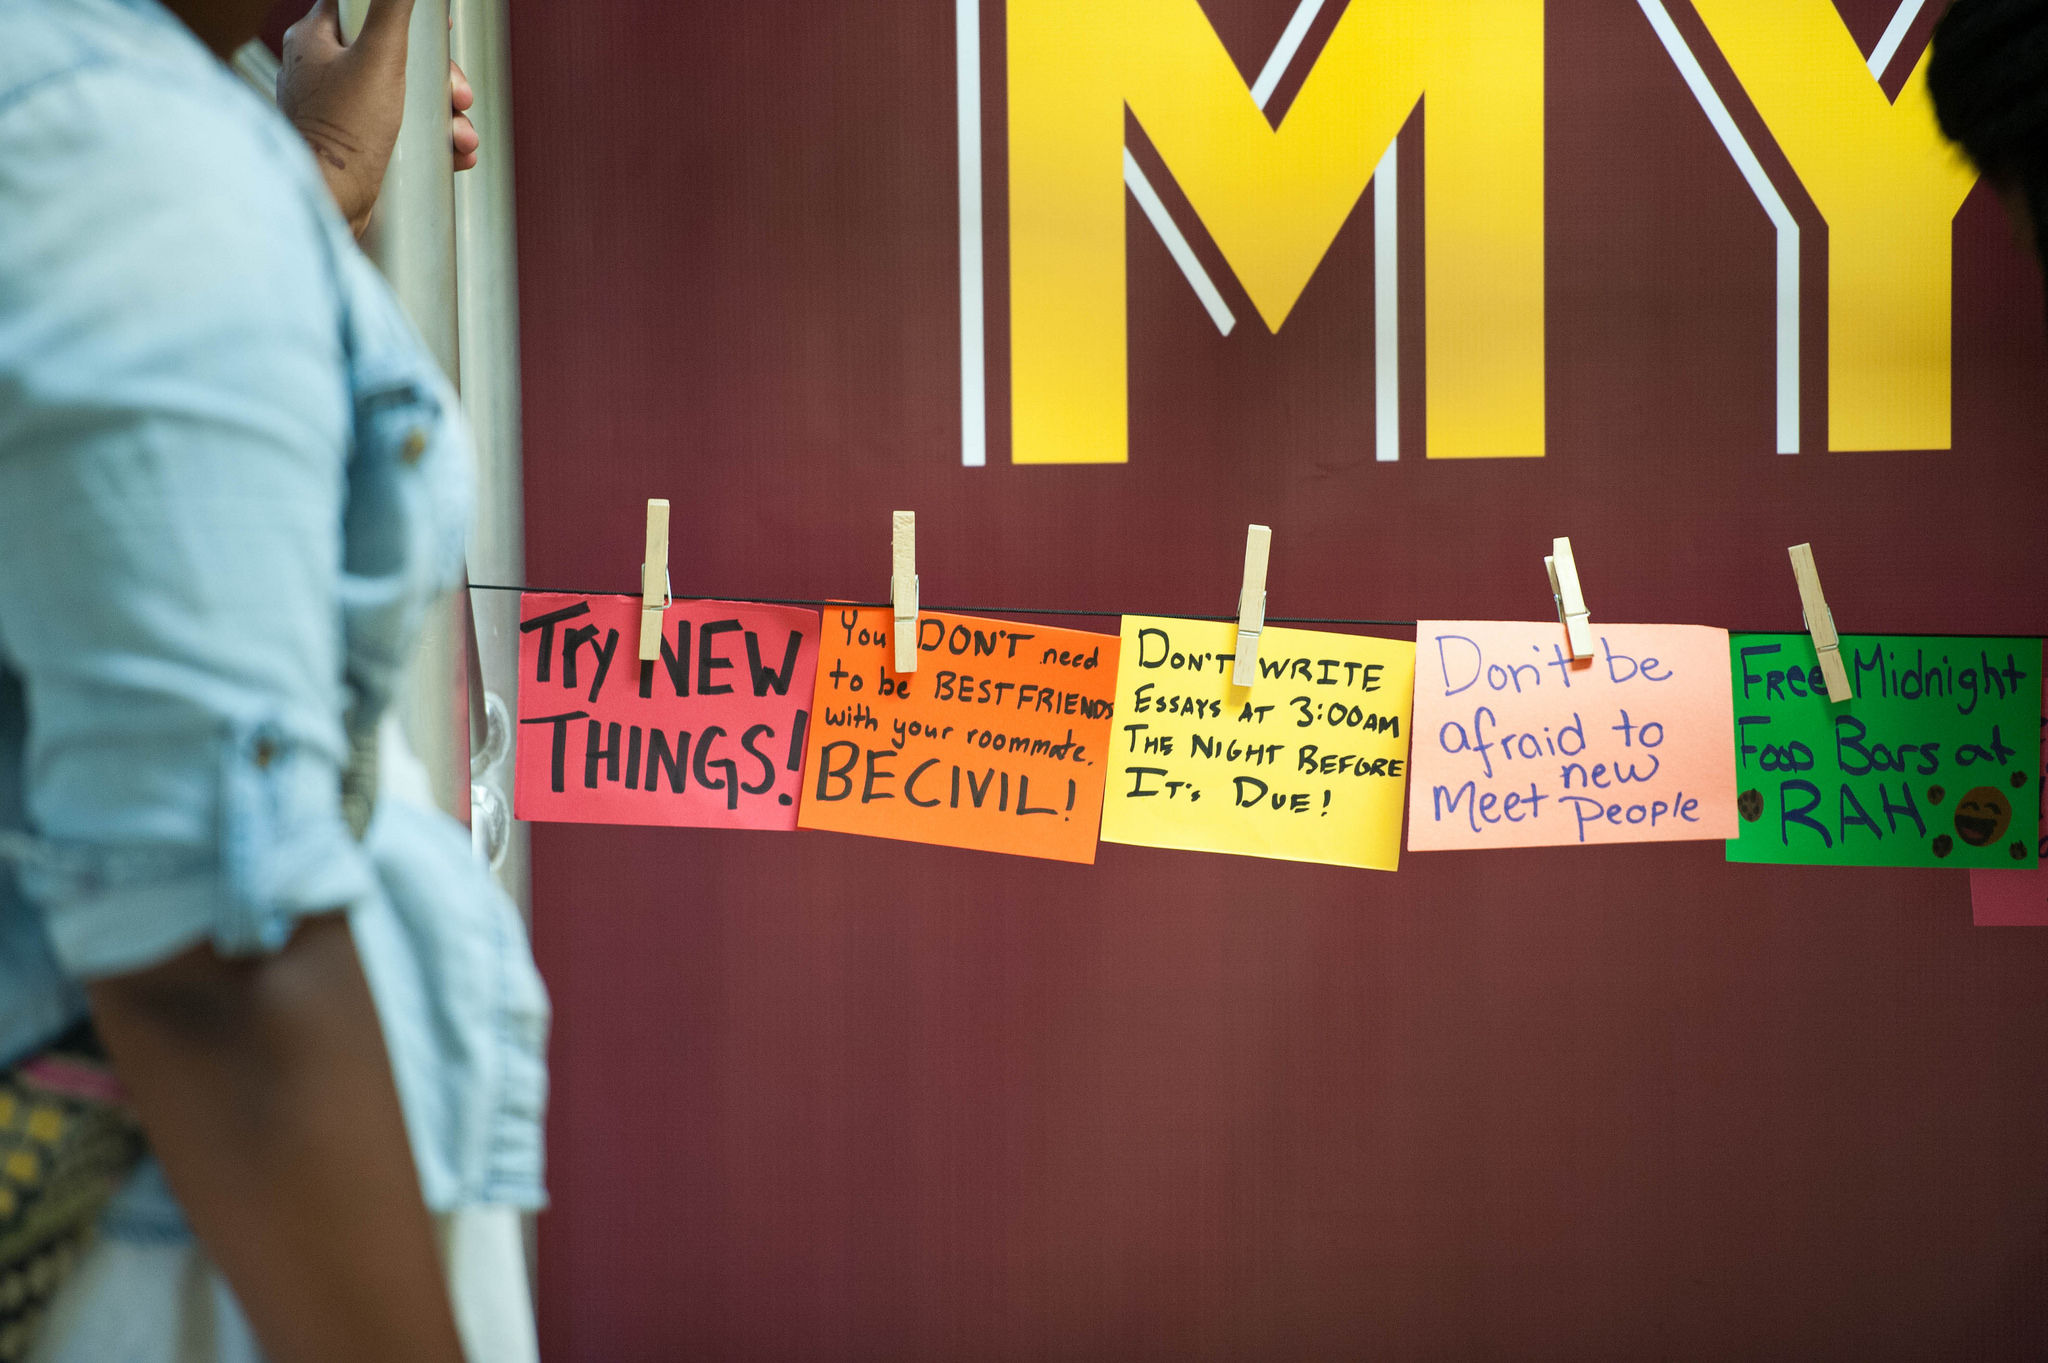 MY
Try NEW
THINGS!
You DON'T need
to be BEST FRIENDS
with your roommate.
BE CIVIL!
DON'T WRITE
ESSAYS AT 3:00AM
THE NIGHT BEFORE
IT'S DUE!
Don't be
afraid to
Meet new
people
Free Midnight
Food Bars at
RAH